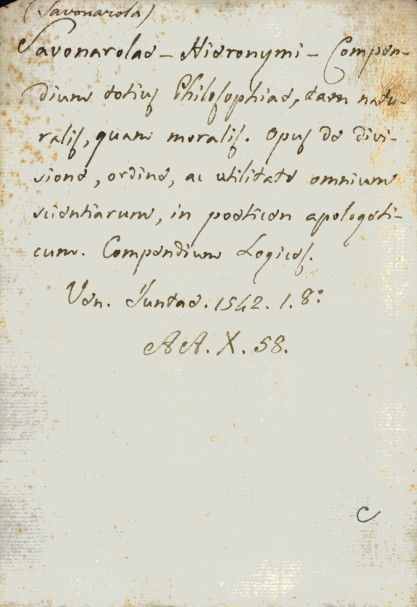 (Savonarola)
Savonarolae - Hieronymi - Compen-
dium totius Philosophiae, tam natu-
ralis, quam moralis. Opus de divi-
sione, ordine, ac utilitate omnium
scientiarum, in poeticen apologeti-
cum. Compendium Logices.
Ven. Juntae. 1542. 1. 8°
AA. X. 58.
C